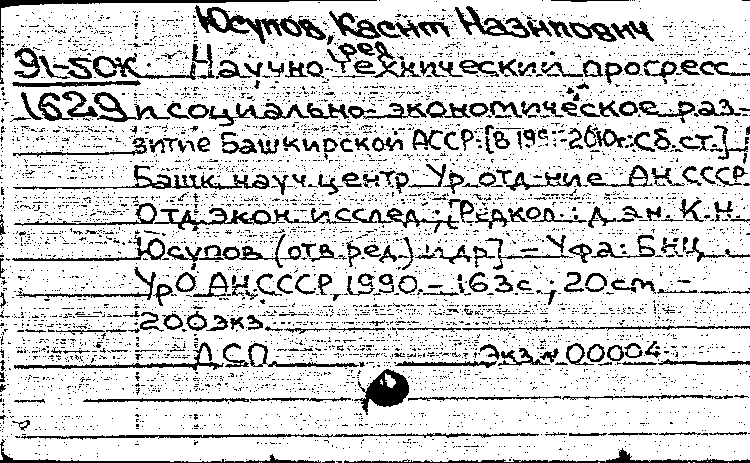 Юсупов, Касит Назипович
ред
91-50К Научно технический прогресс
1629 и социально-экономическое раз-
витие Башкирской АССР: [В 199 -2010г. Сб. ст.] /
Башк. науч. центр Ур. отд-ние АН СССР
Отд. экон. исслед.; [Редкол.: д. эн. К. Н.
Юсупов (отв. ред.) и др.] - Уфа: БНЦ
УрО АН СССР, 1990. - 163с.; 20см. -
200экз.
ДСП. Экз. № 00004